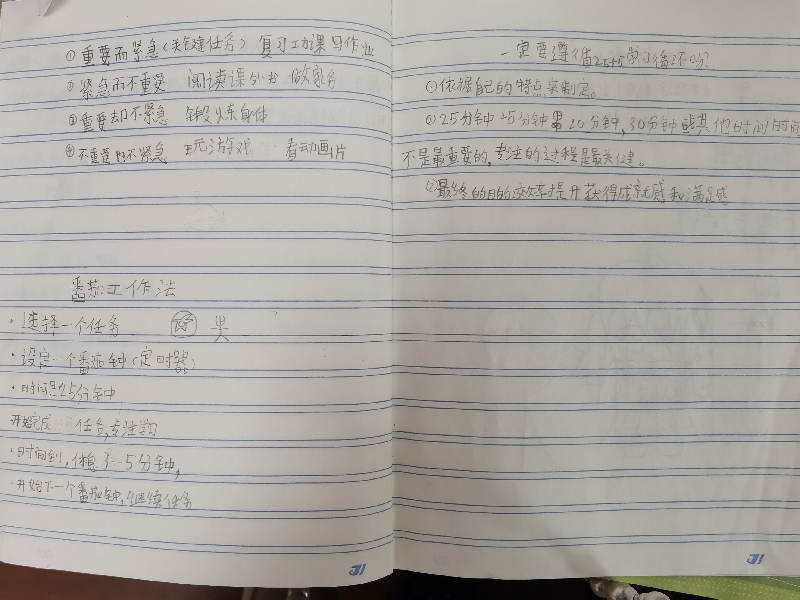 ①重要而紧急(关键任务) 复习功课 写作业
②紧急而不重要 阅读课外书 做家务
③重要却不紧急 锻炼身体
④不重要也不紧急 玩游戏 看动画片
番茄工作法
·选择一个任务 果
·设定一个番茄钟(定时器)
·时间是25分钟
开始完成 任务,专注学习
·时间到,休息3—5分钟,
·开始下一个番茄钟,继续任务
一定要遵循25+5学习循环吗
①依据自己的特点来制定。
②25分钟+5分钟 20分钟,30分钟或其他时间时间
不是最重要的,专注的过程是最关键。
最终的目的效率提升获得成就感和满足感